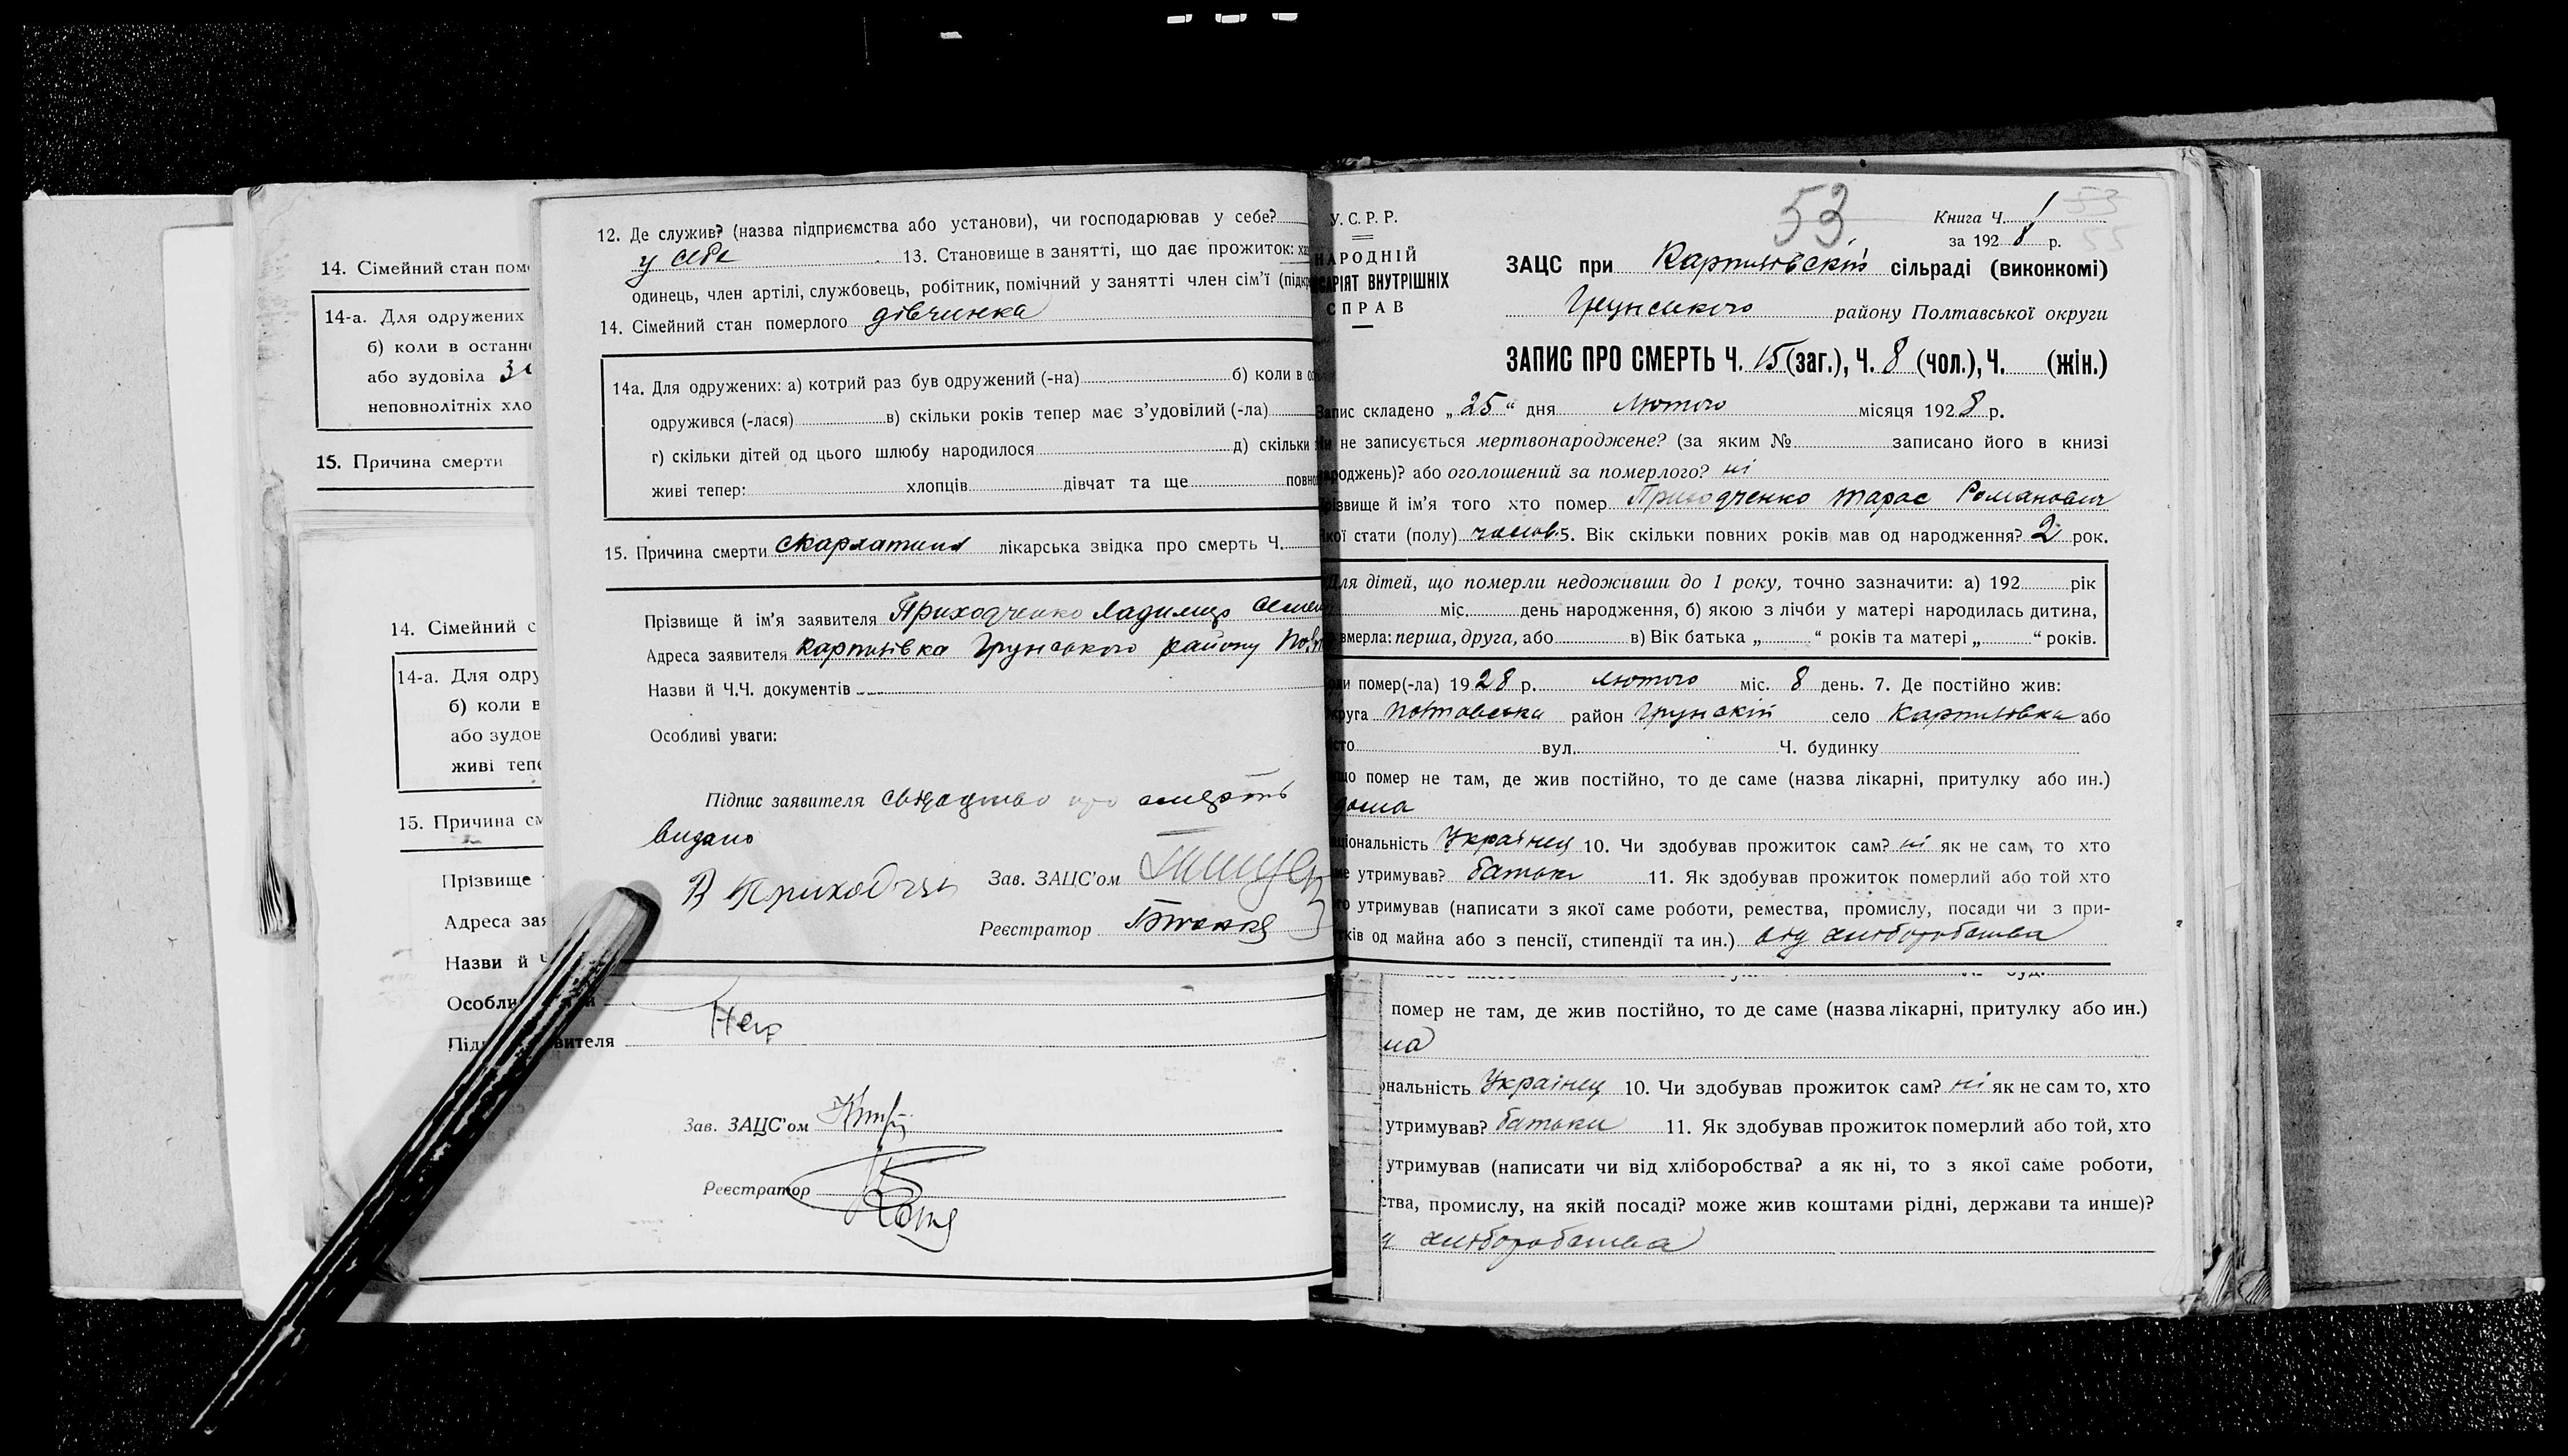 14. Сімейний стан пом
14-а. Для одружених
б) коли в останн
або зудовіла
неповнолітніх хло
15. Причина смерти
14. Сімейний с
14-а. Для одру
б) коли в
або зудов
живі тепе
15. Причина см
Прізвище
Адреса зая
Назви й Ч
Особли
Під вителя
12. Де служив? (назва підприємства або установи), чи господарював у себе?
у себе 13. Становище в занятті, що дає прожиток: ха
одинець, член артілі, службовець, робітник, помічний у занятті член сім’ї (підкр
14. Сімейний стан померлого дівчинка
14а. Для одружених: а) котрий раз був одружений (-на) б) коли в ос
одружився (-лася) в) скільки років тепер має з’удовілий (-ла)
г) скільки дітей од цього шлюбу народилося д) скільки
живі тепер: хлопців дівчат та ще повно
15. Причина смерти скарлатина лікарська звідка про смерть Ч.
Прізвище й ім’я заявителя Приходченко
Адреса заявителя Карпилівка Грунського району Пол
Назви й Ч.Ч. документів
Особливі уваги:
Підпис заявителя свідоцтво про смерть
видано
Зав. ЗАЦС’ом
Реєстратор
Зав. ЗАЦС’ом
Реєстратор
53
У. С. Р. Р.
НАРОДНІЙ
САРІЯТ ВНУТРІШНІХ
СПРАВ
Книга Ч. 1
за 1928 р.
ЗАЦС при Карпилівській сільраді (виконкомі)
Грунського району Полтавської округи
ЗАПИС ПРО СМЕРТЬ Ч. 15 (заг.), Ч. 8 (чол.), Ч. (жін.)
Запис складено „25“ дня лютого місяця 1928 р.
не записується мертвонароджене? (за яким № записано його в книзі
роджень)? або оголошений за померлого? ні
різвище й ім’я того хто помер Приходченко Тарас Романович
кої стати (полу) чолов. 5. Вік скільки повних років мав од народження? 2 рок.
Для дітей, що померли недоживши до 1 року, точно зазначити: а) 192 рік
міс. день народження, б) якою з лічби у матері народилась дитина,
вмерла: перша, друга, або в) Вік батька „ “ років та матері „ “ років.
ли помер(-ла) 1928 р. лютого міс. 8 день. 7. Де постійно жив:
круга Полтавська район Грунскій село Карпилівка або
сто вул. Ч. будинку
що помер не там, де жив постійно, то де саме (назва лікарні, притулку або ин.)
дома
ціональність Українец 10. Чи здобував прожиток сам? ні як не сам, то хто
ме утримував? батьки 11. Як здобував прожиток померлий або той хто
го утримував (написати з якої саме роботи, ремества, промислу, посади чи з при-
тків од майна або з пенсії, стипендії та ин.) від хліборобства
помер не там, де жив постійно, то де саме (назва лікарні, притулку або ин.)
ма
ональність Українец 10. Чи здобував прожиток сам? ні як не сам то, хто
утримував? батьки 11. Як здобував прожиток померлий або той, хто
утримував (написати чи від хліборобства? а як ні, то з якої саме роботи,
ства, промислу, на якій посаді? може жив коштами рідні, держави та инше)?
хліборобства